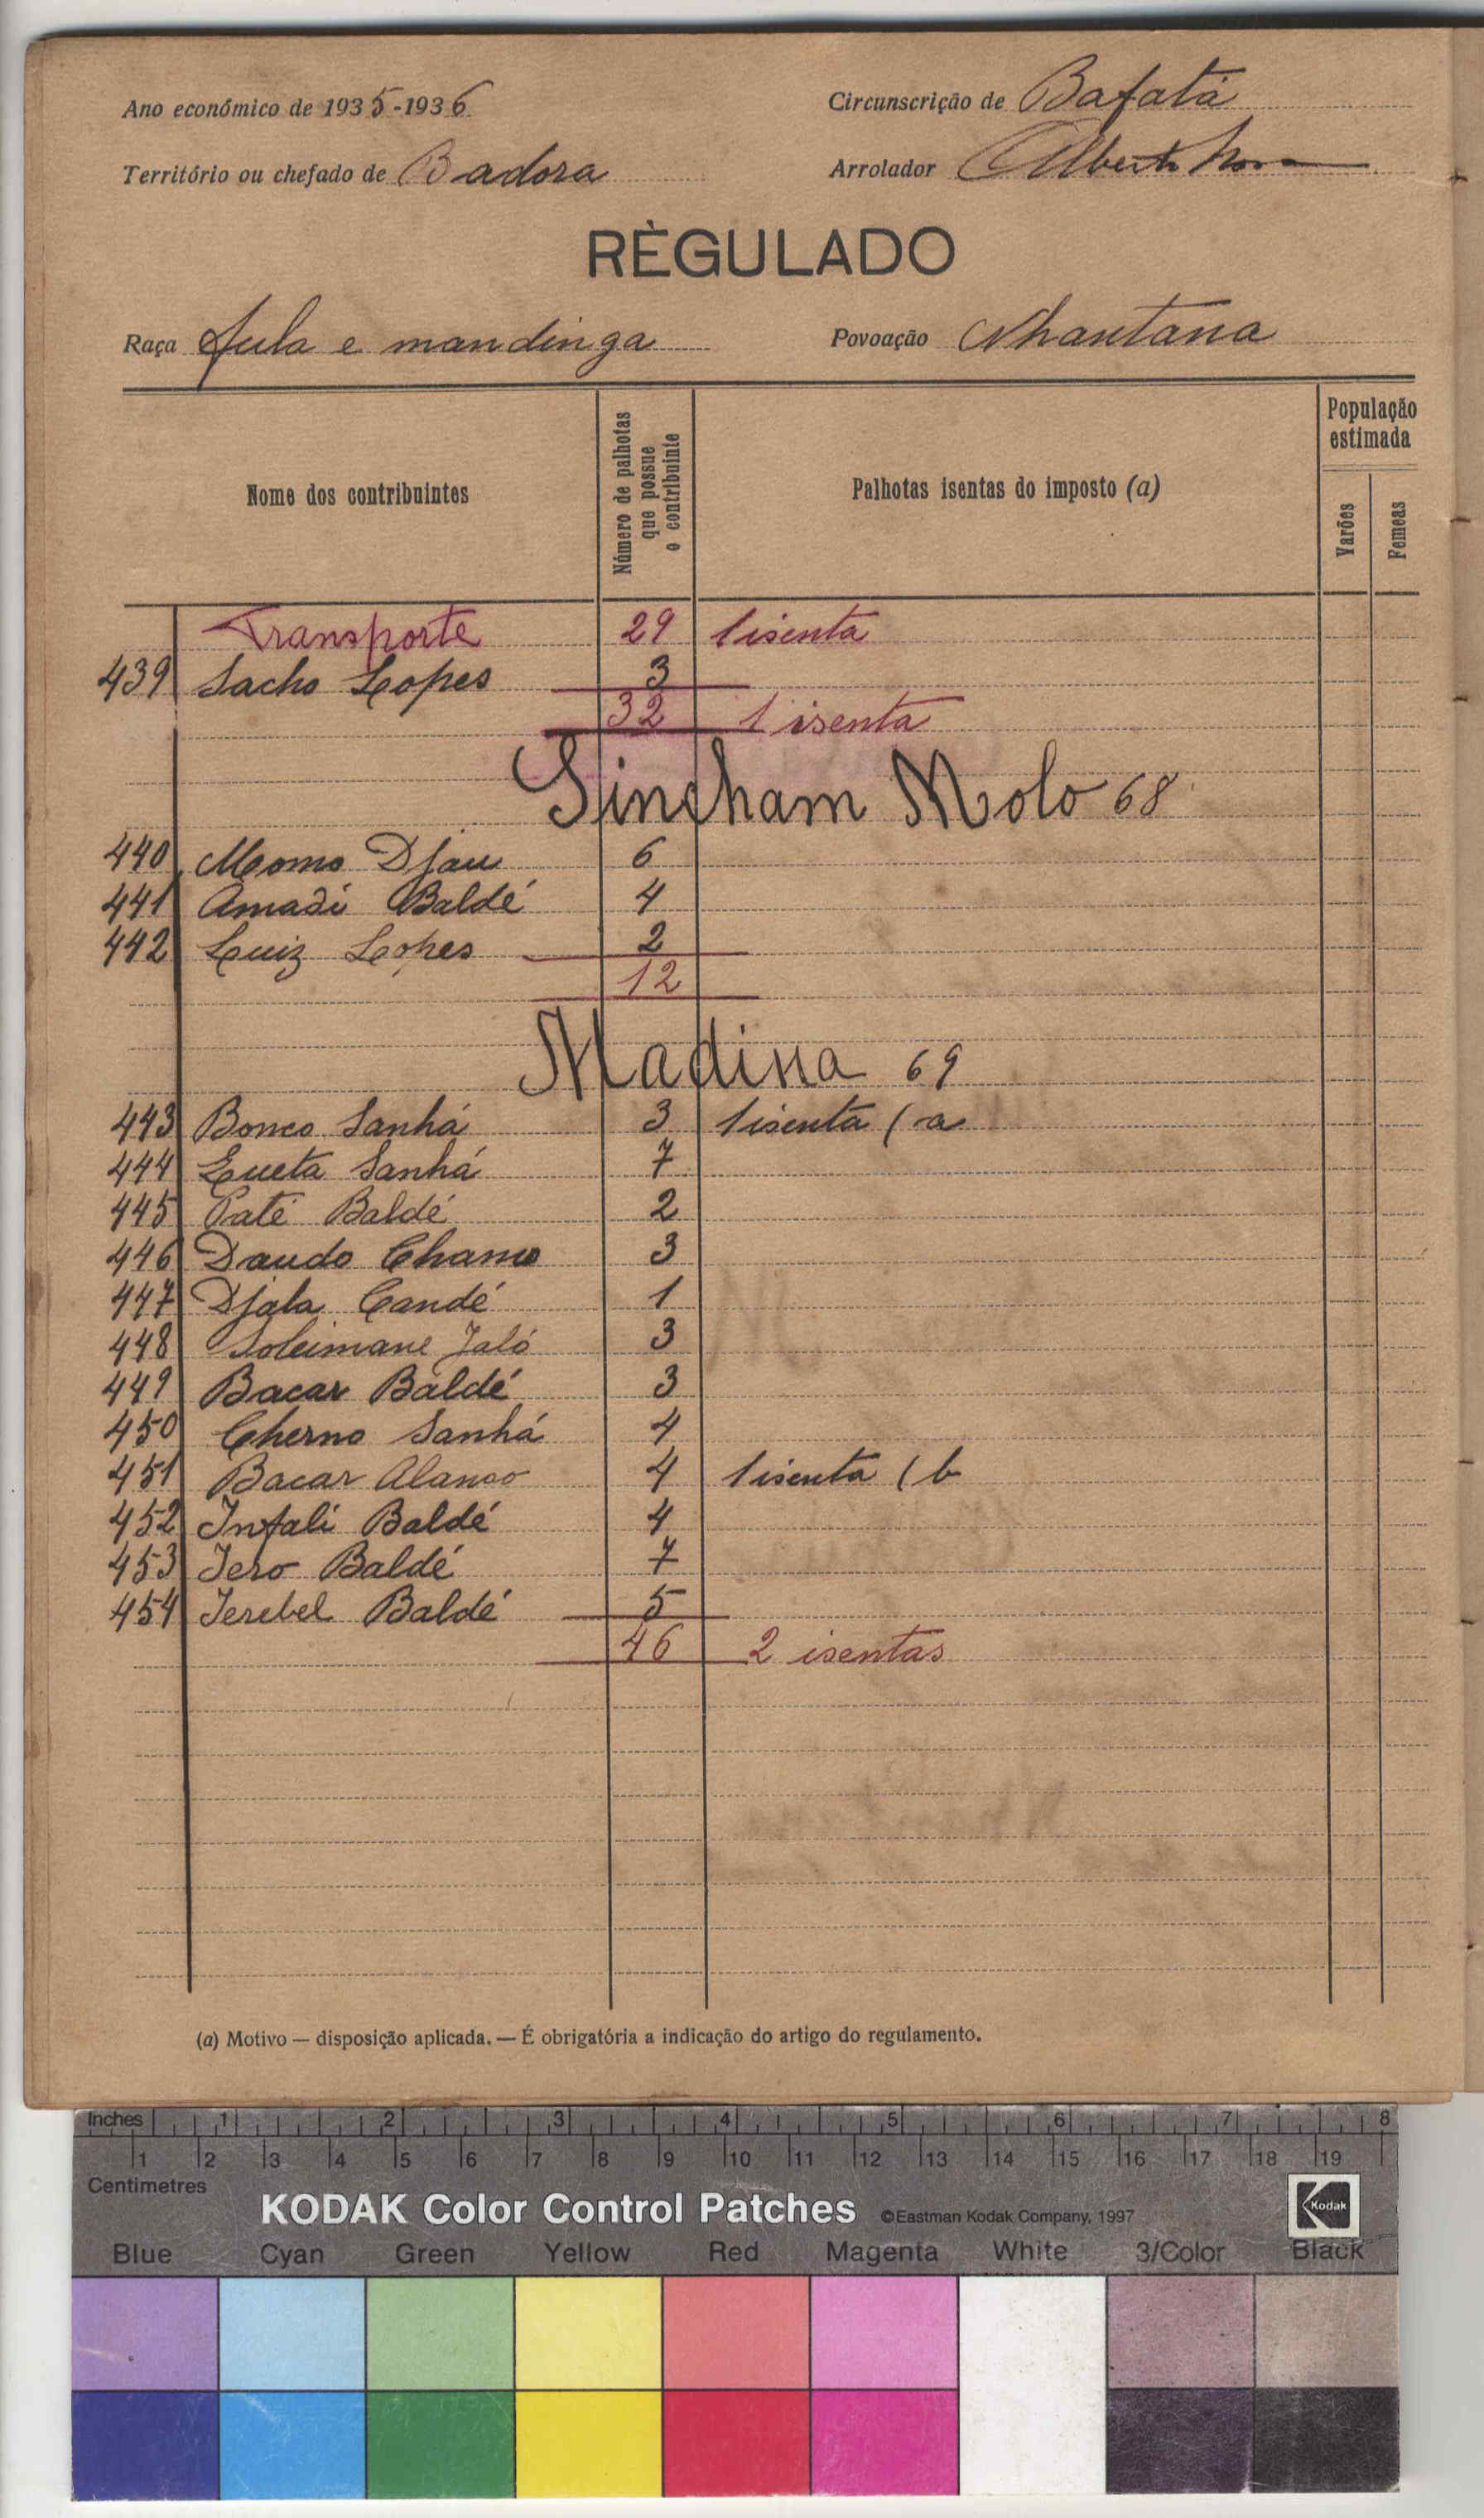 Ano económico de 1935-1936
Circunscrição de Bafatá
Território ou chefado de Badora
Arrolador Alberto
RÈGULADO
Raça fula e mandinga
Povoação Nhantana
Nome dos contribuintes
Número de palhotas que possue o contribuinte
Palhotas isentas do imposto (a)
População estimada
Varões
Femeas
Transporte 29 1 isenta
439 Sacho Lopes 3
32 1 isenta
Sincham Molo 68
440 Momo Djau 6
441 Amadi Baldé 4
442 Luiz Lopes 2
12
Madina 69
443 Bonco Sanhá 3 1 isenta (a
444 Queta Sanhá 7
445 Paté Baldé 2
446 Daudo Chamo 3
447 Djala Candé 1
448 Soleimane Jaló 3
449 Bacar Baldé 3
450 Cherno Sanhá 4
451 Bacar Alanso 4 1 isenta (b
452 Infali Baldé 4
453 Jero Baldé 7
454 Jerebel Baldé 5
46 2 isentas
(a) Motivo — disposição aplicada. — É obrigatória a indicação do artigo do regulamento.
Inches 1 2 3 4 5 6 7 8
1 2 3 4 5 6 7 8 9 10 11 12 13 14 15 16 17 18 19
Centimetres
KODAK Color Control Patches ©Eastman Kodak Company, 1997 Kodak
Blue Cyan Green Yellow Red Magenta White 3/Color Black